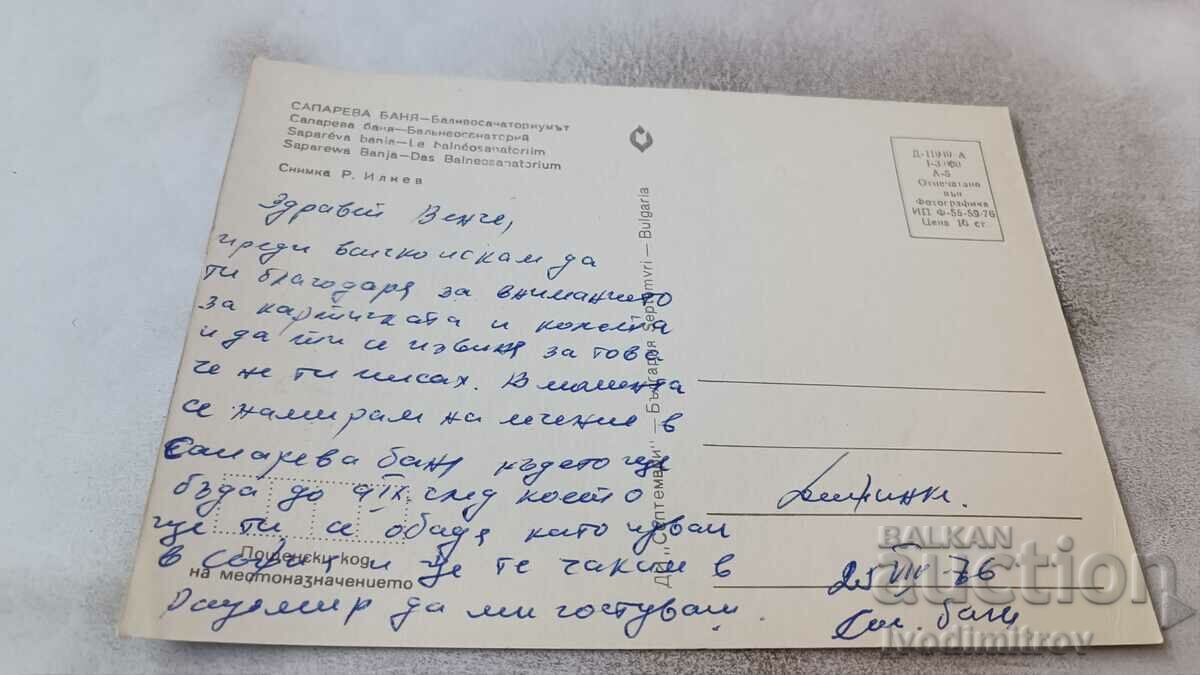 САПАРЕВА БАНЯ—Балнеосанаториумът
Сапарева баня—Бальнеосанаторий
Saparéva bania—Le balnéosanatoriim
Saparewa Banja—Das Balneosanatorium
Снимка Р. Илиев
Здравей Венче,
преди всичко искам да
ти благодаря за вниманието
за картичката и колетa
и да ти се извиня за това
че не ти писах. В момента
се намирам на лечение в
Сапарева баня където ще
бъда до 9 IX. след което
ще ти се обадя като идвам
в София и ще те чакам в
Радомир да ми гостуваш.
Пощенски код
на местоназначението
ДП „Септември" — България Septemvri — Bulgaria
Д-11949-А
А-5
Отпечатано
във
Фотографика
ИП Ф-55-59-76
Цена 16 ст
25 VIII 76
Сп. баня
BALKAN
Auction
ivodimitrov